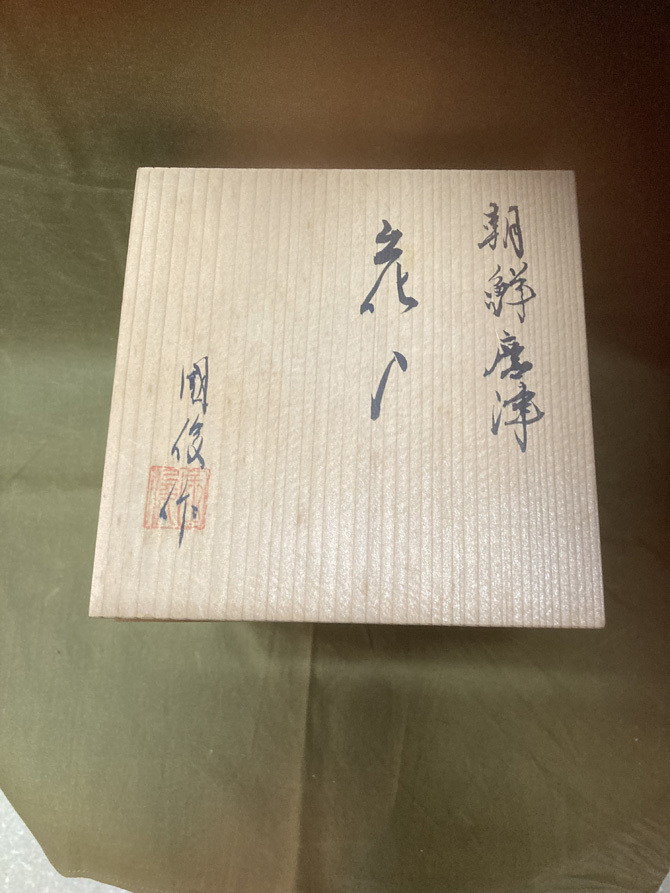 朝鮮唐津
花入
國俊作